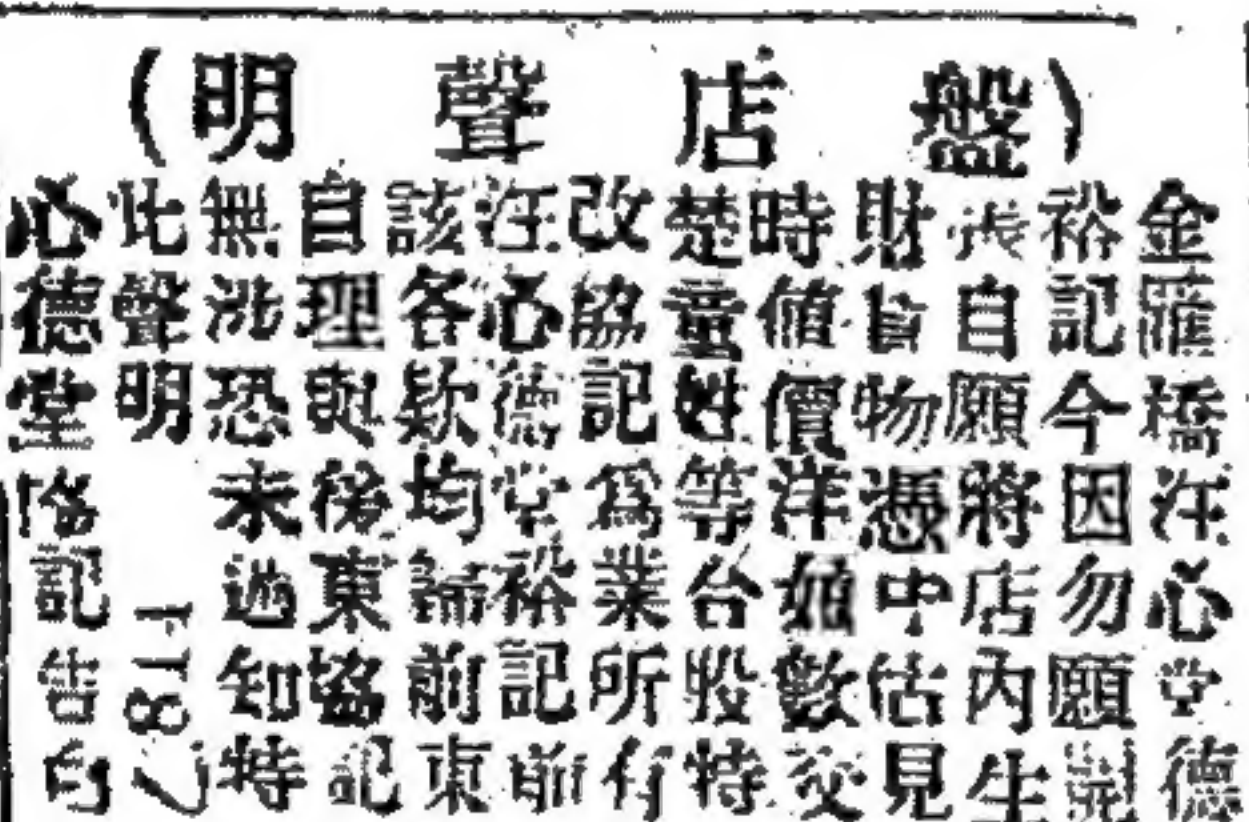 (盤店聲明)
金匯橋汪心堂德
裕記今因勿願開
張自願將店內生
財旨物憑中估見
時值價洋如數交
楚童姓等台股特
改協記爲業所有
汪心德堂裕記前
該各欵均歸前東
自理與後東協記
無涉恐未週知特
此聲明
心德堂裕記告白